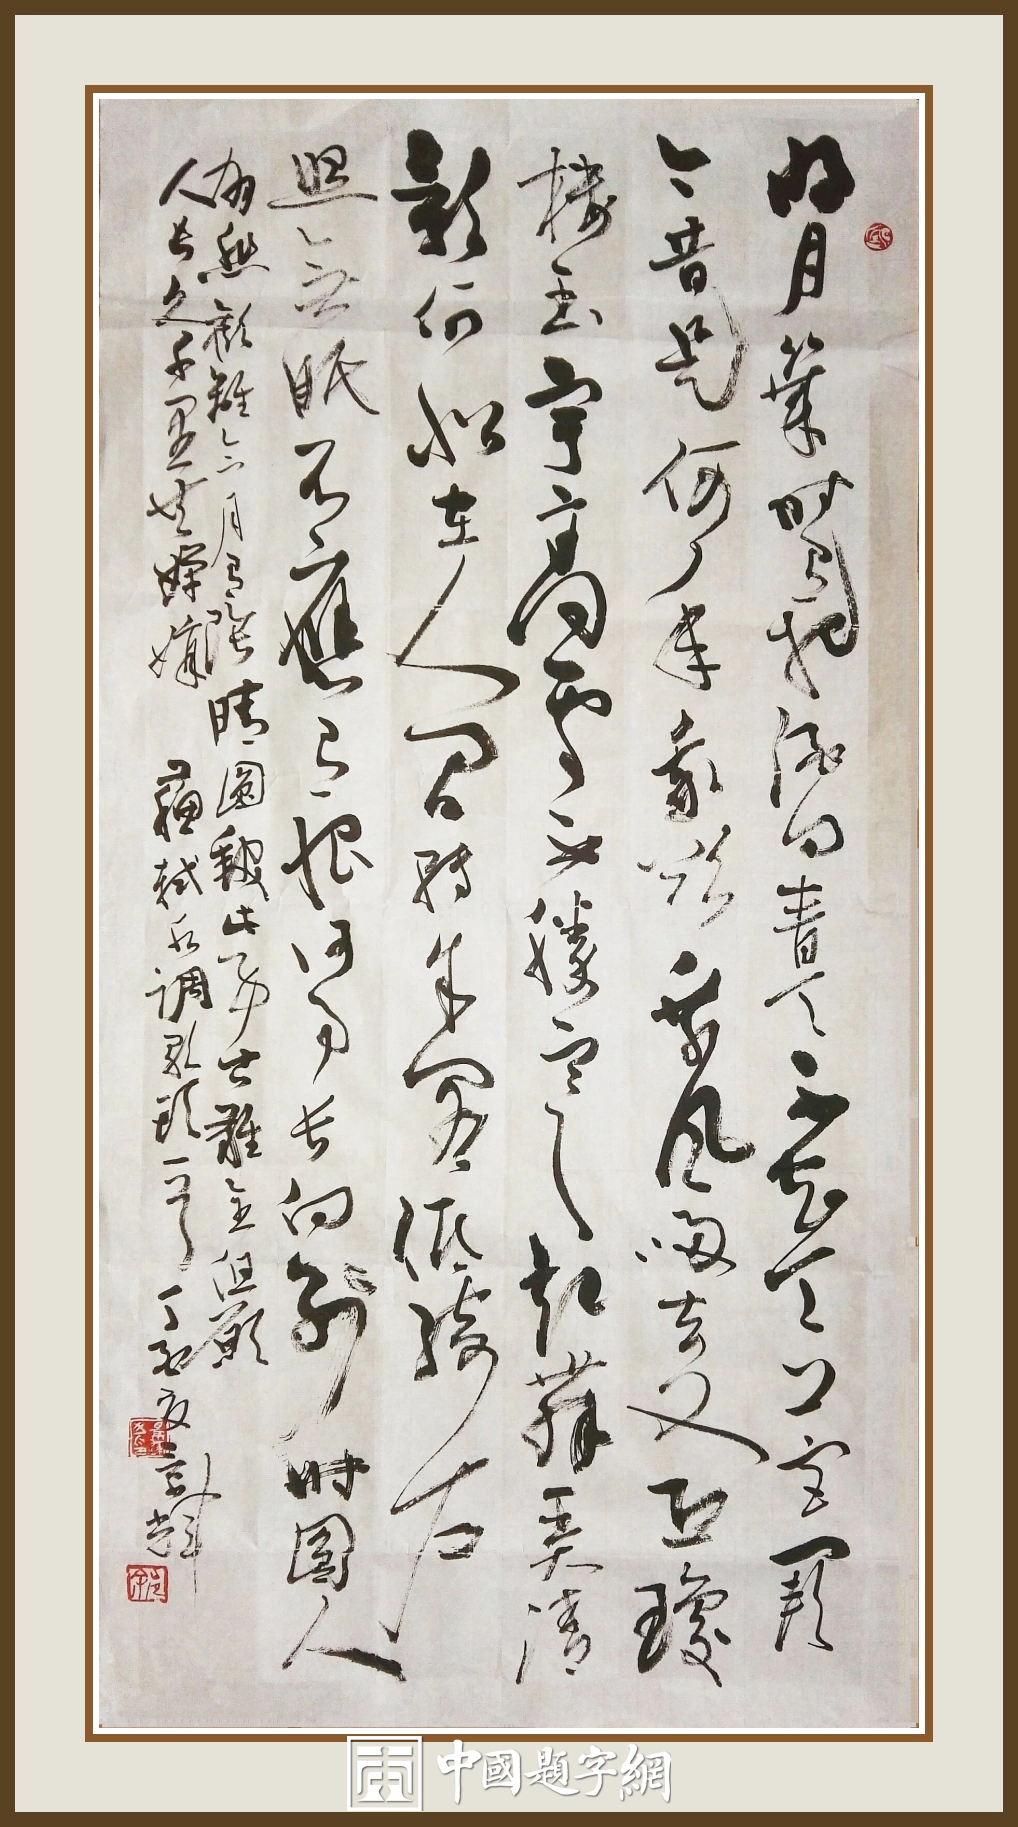 明月幾時有把酒問青天不知天上宮闕
今昔是何年我欲乘風歸去又恐瓊
樓玉宇高處不勝寒起舞弄清
影何似在人間轉朱閣低綺戶
照無眠不應有恨何事長向別時圓人
有悲歡離合月有陰晴圓缺此事古難全但願
人長久千里共嬋娟 蘇軾水調歌頭一首 丁酉夏
中國題字網